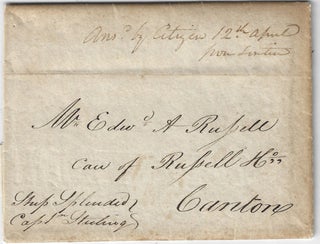 Ansd by Citizen 12th April
from Lintin
Mr Edwd A Russell
care of Russell & Co
Canton
Ship Splendid
Captn Sterling